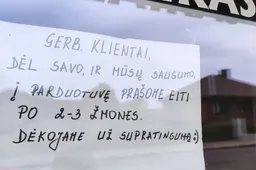 RAS
GERB. KLIENTAI,
DĖL SAVO, IR MŪSŲ SAUGUMO,
Į PARDUOTUVĘ PRAŠOME EITI
PO 2-3 ŽMONES.
DĖKOJAME UŽ SUPRATINGUMĄ :)